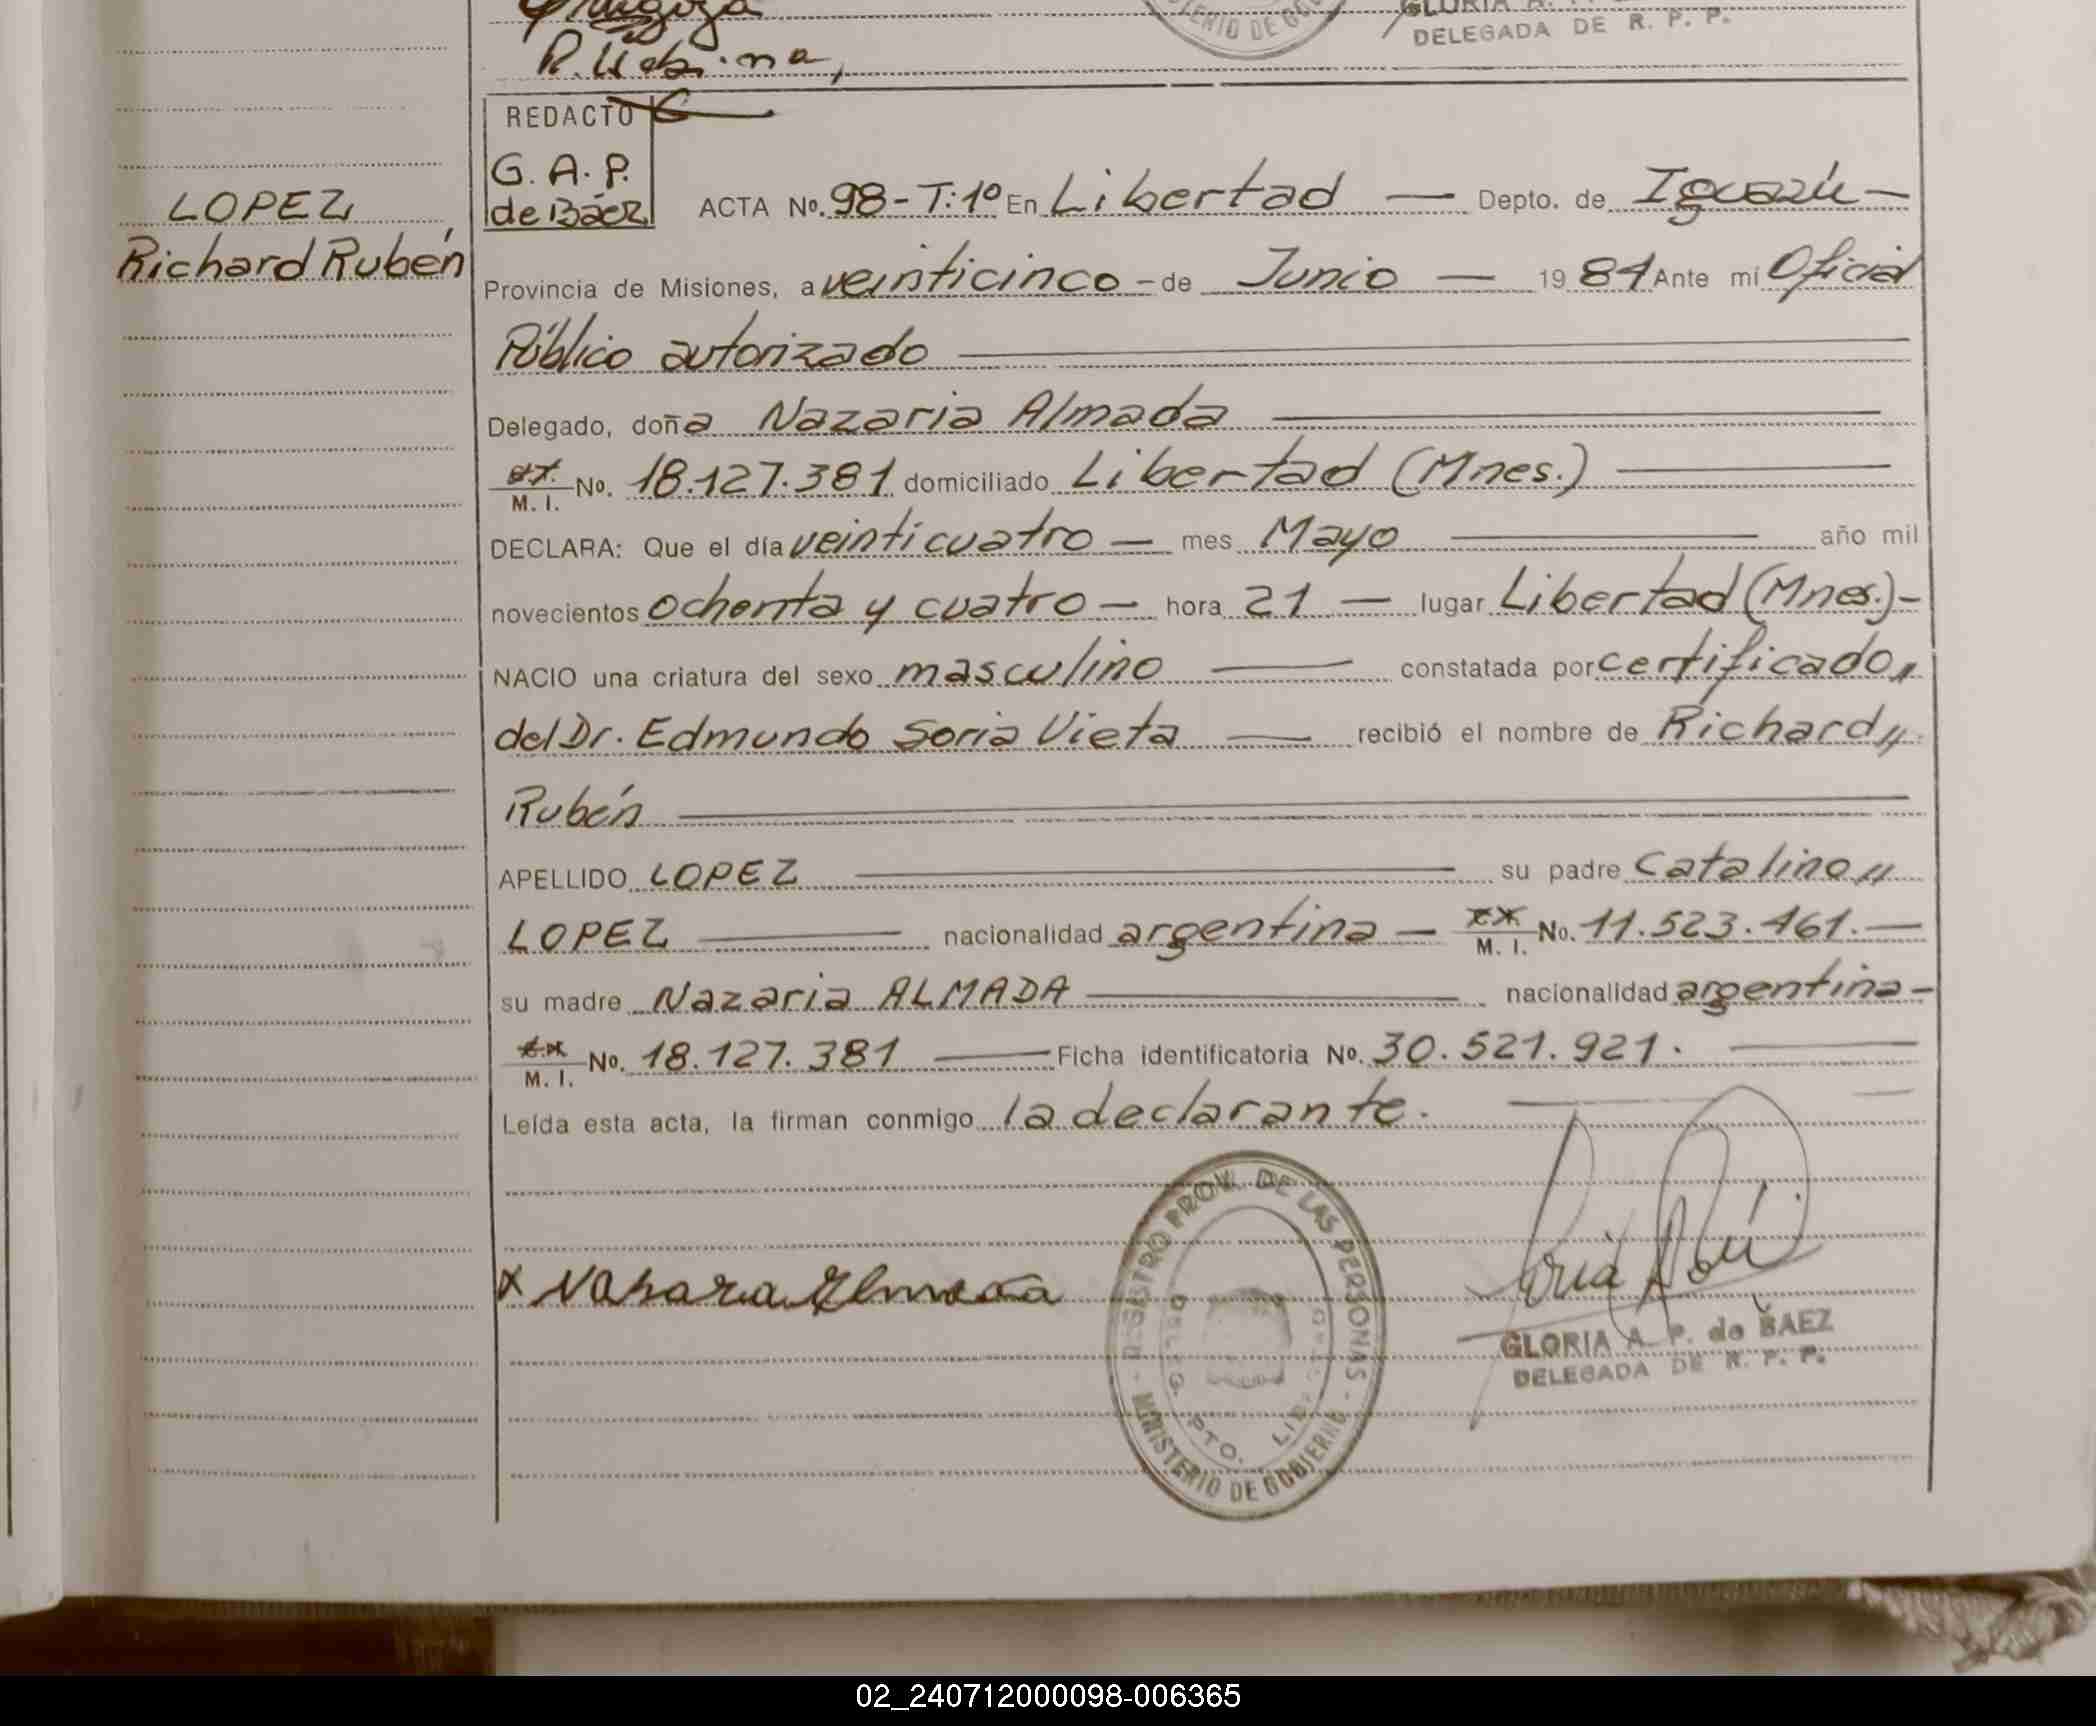 R. Urbina,
GLORIA A. P.
DELEGADA DE R. P. P.
MINISTERIO DE GO
REDACTO
G. A. P.
de Báez
LOPEZ,
Richard Rubén
ACTA No. 98 - T: 1º En Libertad — Depto. de Iguazú —
Provincia de Misiones, a veinticinco - de Junio — 19 84 Ante mí Oficial
Público autorizado
Delegado, doña Nazaria Almada
M. I. No. 18.127.381 domiciliado Libertad (Mnes.)
DECLARA: Que el día veinticuatro — mes Mayo año mil
novecientos ochenta y cuatro — hora 21 — lugar Libertad (Mnes.) -
NACIO una criatura del sexo masculino — constatada por certificado,,
del Dr. Edmundo Soria Vieta — recibió el nombre de Richard,,
Rubén
APELLIDO LOPEZ su padre Catalino,,
LOPEZ — nacionalidad argentina — M. I. No. 11.523.461. —
su madre Nazaria ALMADA nacionalidad argentina -
M. I. No. 18.127.381 — Ficha identificatoria No. 30.521.921. —
Leída esta acta, la firman conmigo la declarante.
REGISTRO PROV. DE LAS PERSONAS - MINISTERIO DE GOBIERNO -
GLORIA A. P. de BAEZ
DELEGADA DE R. P. P.
02_240712000098-006365